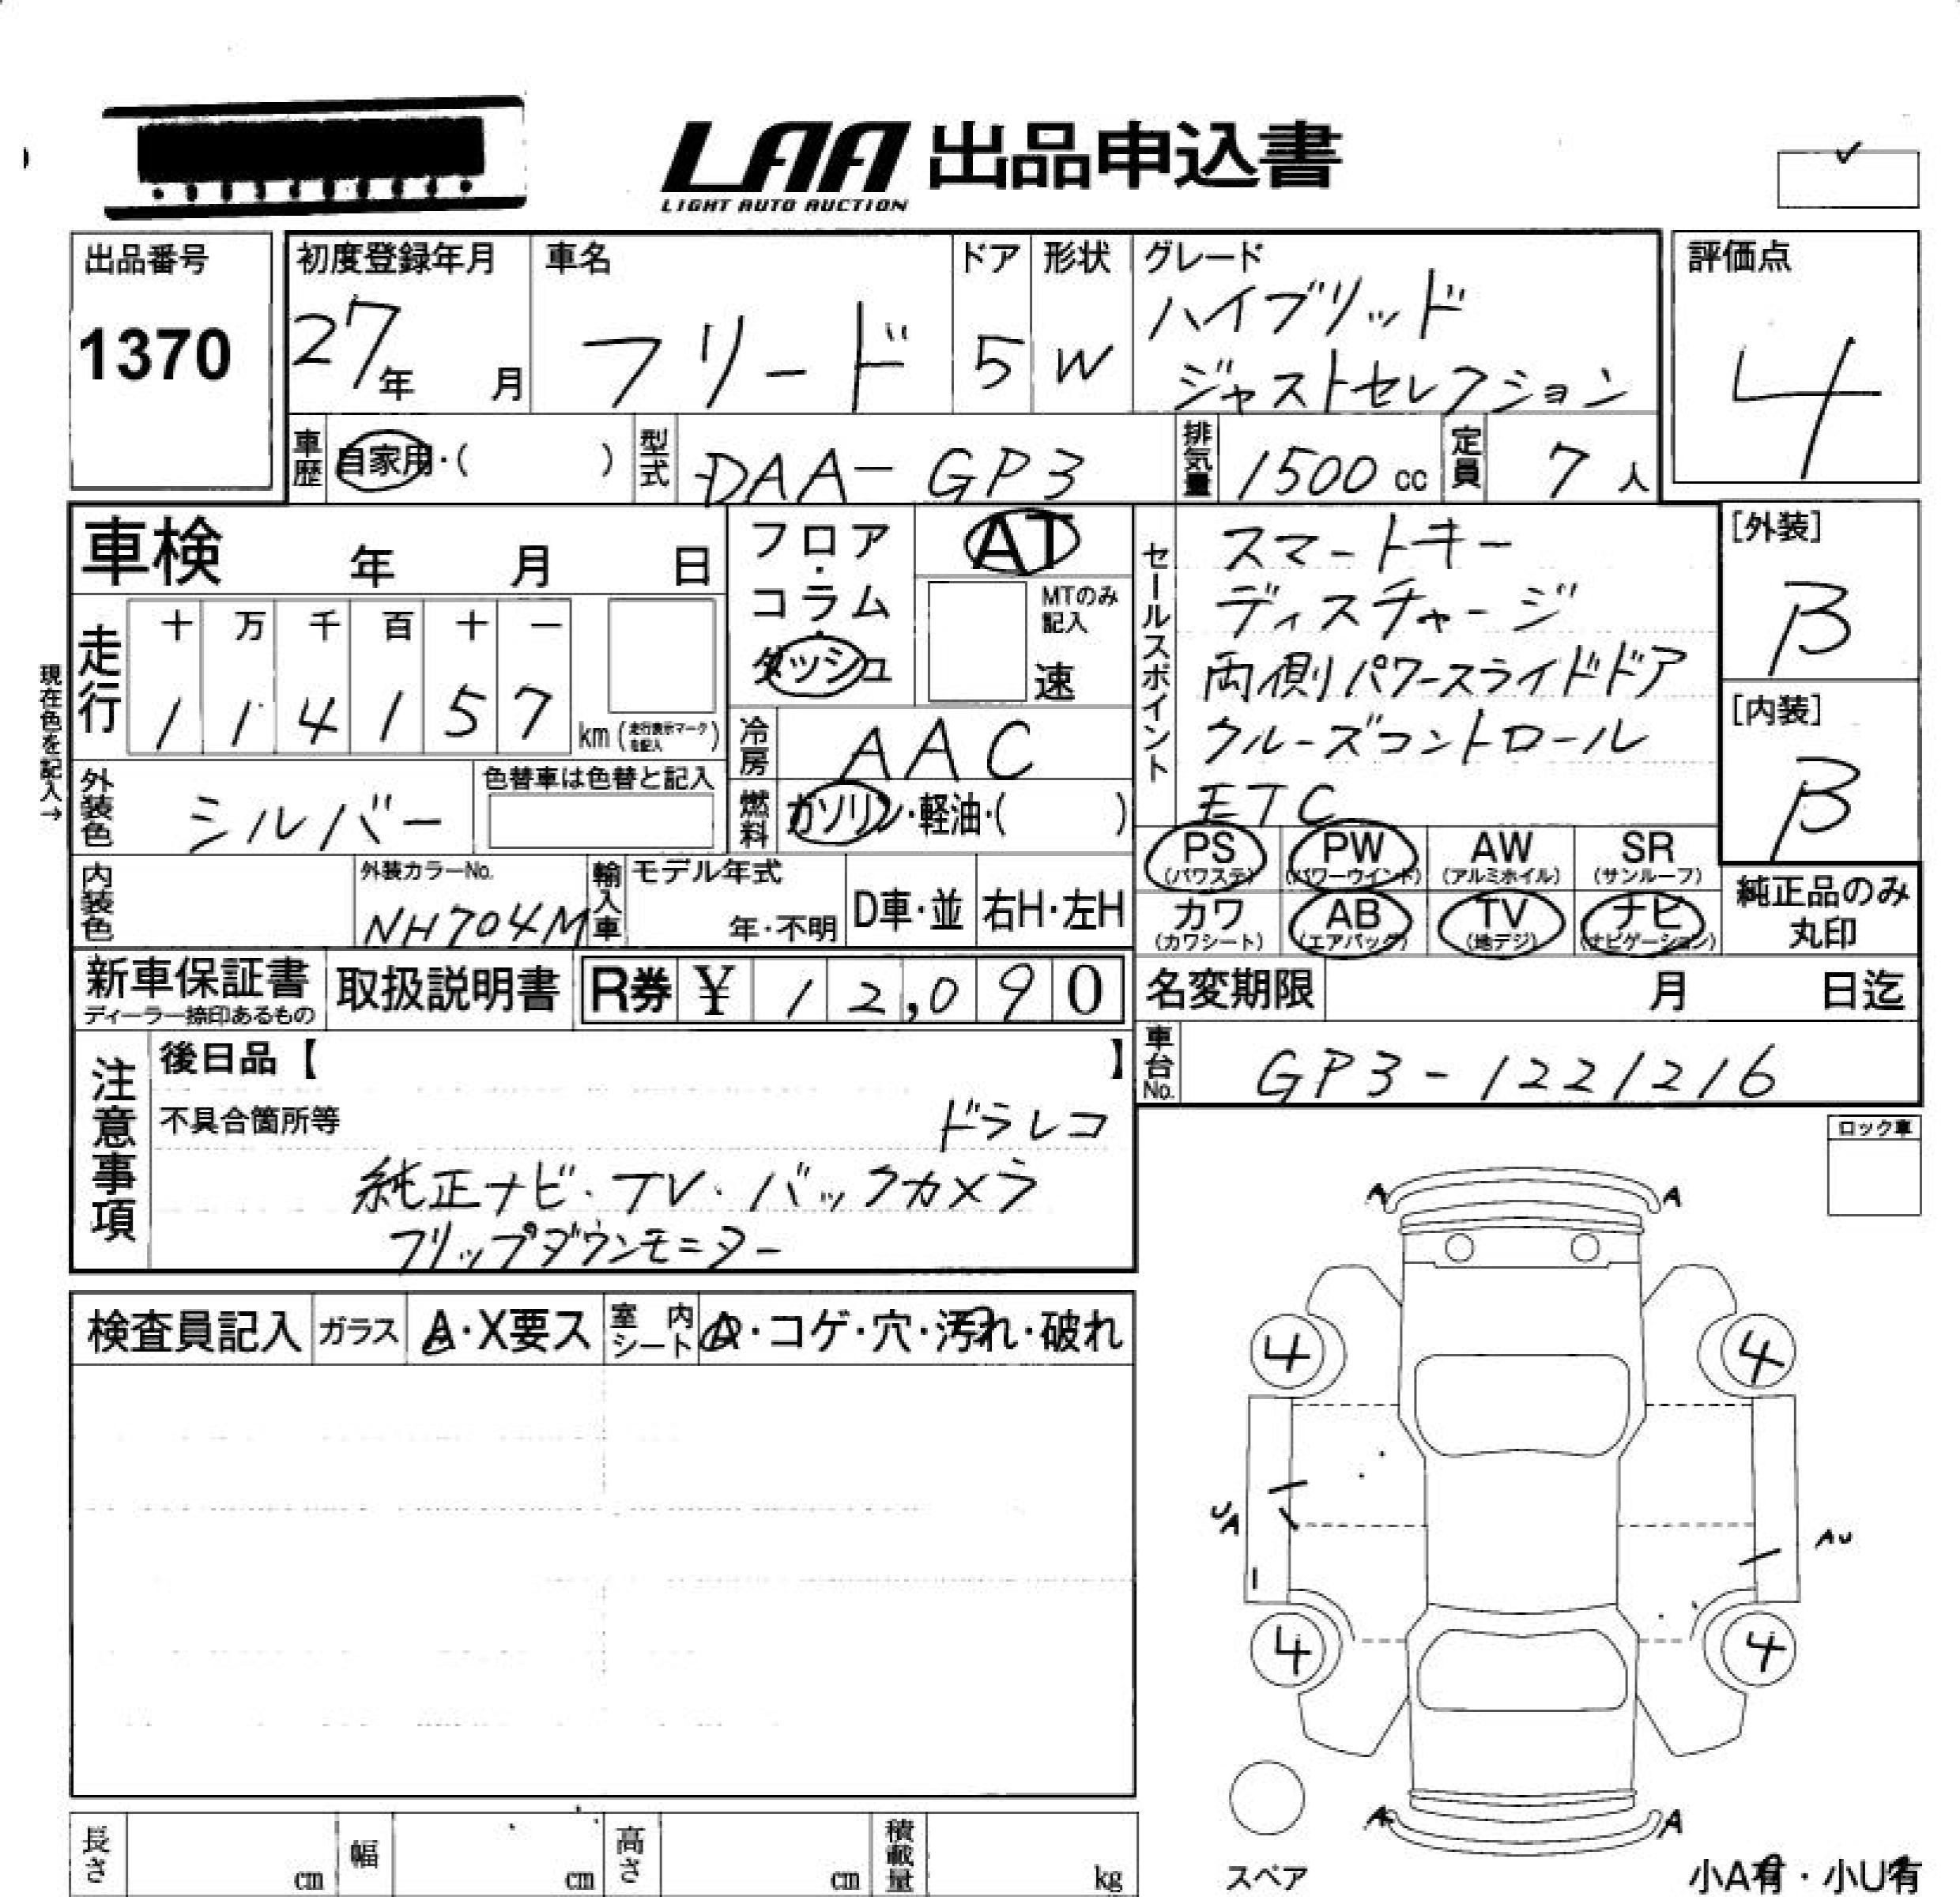 LAA 出品申込書
LIGHT AUTO AUCTION
出品番号
1370
初度登録年月
27年 月
車名
フリード
ドア
5
形状
W
グレード
ハイブリッド
ジャストセレクション
評価点
4
車歴
自家用・( )
型式
DAA-GP3
排気量
1500 cc
定員
7 人
車検 年 月 日
走行
十 万 千 百 十 一
1 1 4 1 5 7
km (走行表示マークを記入)
現在色を記入→
フロア・コラム・ダッシュ
AT
MTのみ記入
速
冷房
AAC
燃料
ガソリン・軽油・( )
セールスポイント
スマートキー
ディスチャージ
両側パワースライドドア
クルーズコントロール
ETC
[外装]
B
[内装]
B
外装色
シルバー
色替車は色替と記入
内装色
外装カラーNo.
NH704M
輸入車
モデル年式
年・不明
D車・並
右H・左H
PS (パワステ)
PW (パワーウインド)
AW (アルミホイル)
SR (サンルーフ)
カワ (カワシート)
AB (エアバッグ)
TV (地デジ)
ナビ (ナビゲーション)
純正品のみ
丸印
新車保証書
ディーラー捺印あるもの
取扱説明書
R券 ¥ 12,090
名変期限 月 日迄
車台No.
GP3-1221216
注意事項
後日品【 】
不具合箇所等
ドラレコ
純正ナビ・TV・バックカメラ
フリップダウンモニター
ロック車
検査員記入
ガラス
A・X要ス
室内シート
A・コゲ・穴・汚れ・破れ
A A
4 4
UA
AU
4 4
A A
スペア
小A有・小U有
長さ cm
幅 cm
高さ cm
積載量 kg